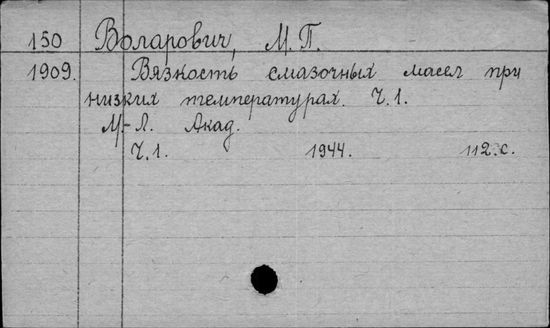 150 Воларович, М. П.
1909. Вязкость смазочных масел при
низких температурах. Ч. 1.
М-Л. Акад.
Ч. 1. 1944. 112 с.